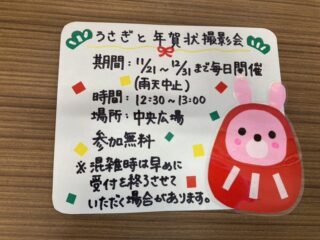 うさぎと年賀状撮影会
期間：11/21～12/31まで毎日開催
(雨天中止)
時間：12:30～13:00
場所：中央広場
参加無料
※混雑時は早めに
受付を終了させて
いただく場合があります。